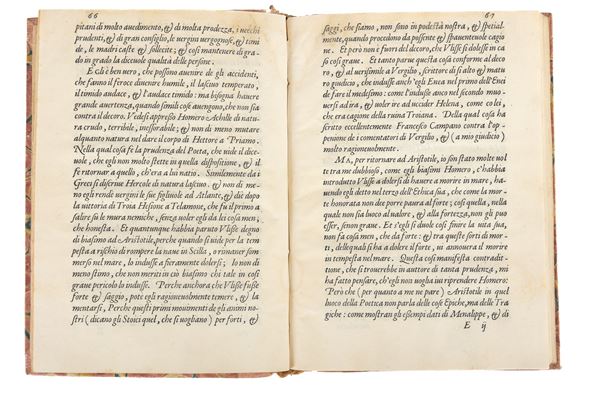 66
pitani di molto avedimento, & di molta prodezza, i vecchi
prudenti, & di gran consiglio, le vergini vergognose, & timi
de, le madri caste & sollecite; & così mantenere di gra
do in grado la diceuole qualità delle persone.
E ch'è ben vero, che possono auenire de gli accidenti,
che fanno il feroce diuenire humile, il lasciuo temperato,
il timido audace, & l'audace timido: ma bisogna hauere
grande auertenza, quando simili cose auengono, che non sia
contra il decoro. Vedesi appresso Homero Achille di natura
crudo, terribile, inessorabile; & non di meno mutare
alquanto natura nel dare il corpo di Hettore a Priamo.
Nella qual cosa fe la prudenza del Poeta, che vide il dice-
uole, che egli non molto stette in quella dispositione, & il
fe ritornar a quello, ch'era a lui natio. Similemente da i
Greci si disse Hercole di natura lasciuo: & non di me-
no egli rende vergini le sue figliuole ad Atlante, & die dopo
la uittoria di Troia Hesione a Telamone, che fu il primo a
salire su le mura nemiche, senza voler egli da lei cosa men,
che honesta. Et quantunque habbia paruto Vlisse degno
di biasimo ad Aristotile, perche quando si uide per la tem
pesta a rischio di rompere la naue in Scilla, o rimaner som
merso nel mare, lo indusse a fieramente dolersi; Io non di
meno stimo, che non meriti in ciò biasimo chi tale in così
graue pericolo lo indusse. Perche anchora che Vlisse fusse
forte & saggio, pote egli ragioneuolmente temere, & la
mentarsi, Perche questi primi mouimenti de gli animi no-
stri (dicano gli Stoici quel, che si uogliano) per forti, &
67
saggi, che siamo, non sono in podestà nostra, & spetial-
mente, quando procedono da possente & spauenteuole cagio
ne. Et però non è fuori del decoro, che Vlisse si dolesse in ca
so così graue. Et in tanto parue questa cosa conforme al deco
ro, & al uerisimile a Vergilio, scrittore di sì alto & maturo
giudicio, che indusse anch'egli Enea nel primo dell'Enei
de fare il medesimo: come l'indusse anco nel secondo muo-
uersi ad ira, & voler ire ad uccider Helena, come colei,
che era cagione della ruina Troiana. Della qual cosa ha
scritto eccellentemente Francesco Campano contra l'op-
penione de i comentatori di Vergilio, & (a mio giudicio)
molto ragioneuolmente.
Ma, per ritornar ad Aristotile, io son stato molte vol
te tra me dubbioso, come egli biasimi Homero, c'habbia
introdutto Vlisse a dolersi di hauere a morire in mare, ha-
uendo egli detto nel terzo dell'Ethica sua, che come la mor-
te honorata non dee parere paura al forte; così quella, nella
quale non sia luogo al ualore, & alla fortezza, non gli può
esser, se non graue. Et s'egli si duole così finire la vita sua,
non fa cosa men, che da forte: & tra queste sorti di mor-
ti, delle quali si ha a dolere il forte, ui annouera il morire
in tempesta nel mare. Questa così manifesta contradit-
tione, che si trouerebbe in auttore di tanta prudenza, mi
ha fatto pensare, ch'egli non voglia iui riprendere Homero:
Però che (per quanto a me ne pare) Aristotile in quel
luoco della Poetica non parla delle cose Epiche, ma delle Tra
giche: come mostran gli essempi dati di Menalippe, & di
E ij